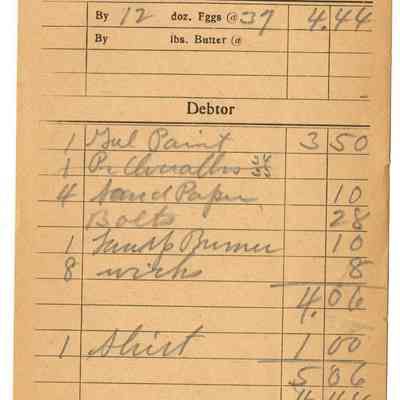 By 12 doz. Eggs @ 37 4.44
By lbs. Butter @
Debtor
1 Gal Paint 3 50
1 Pr Overalls 34 35
4 Sand Paper 10
Bolts 28
1 Lamp Burner 10
8 wicks 8
4.06
1 Shirt 1 00
5 06
4 44